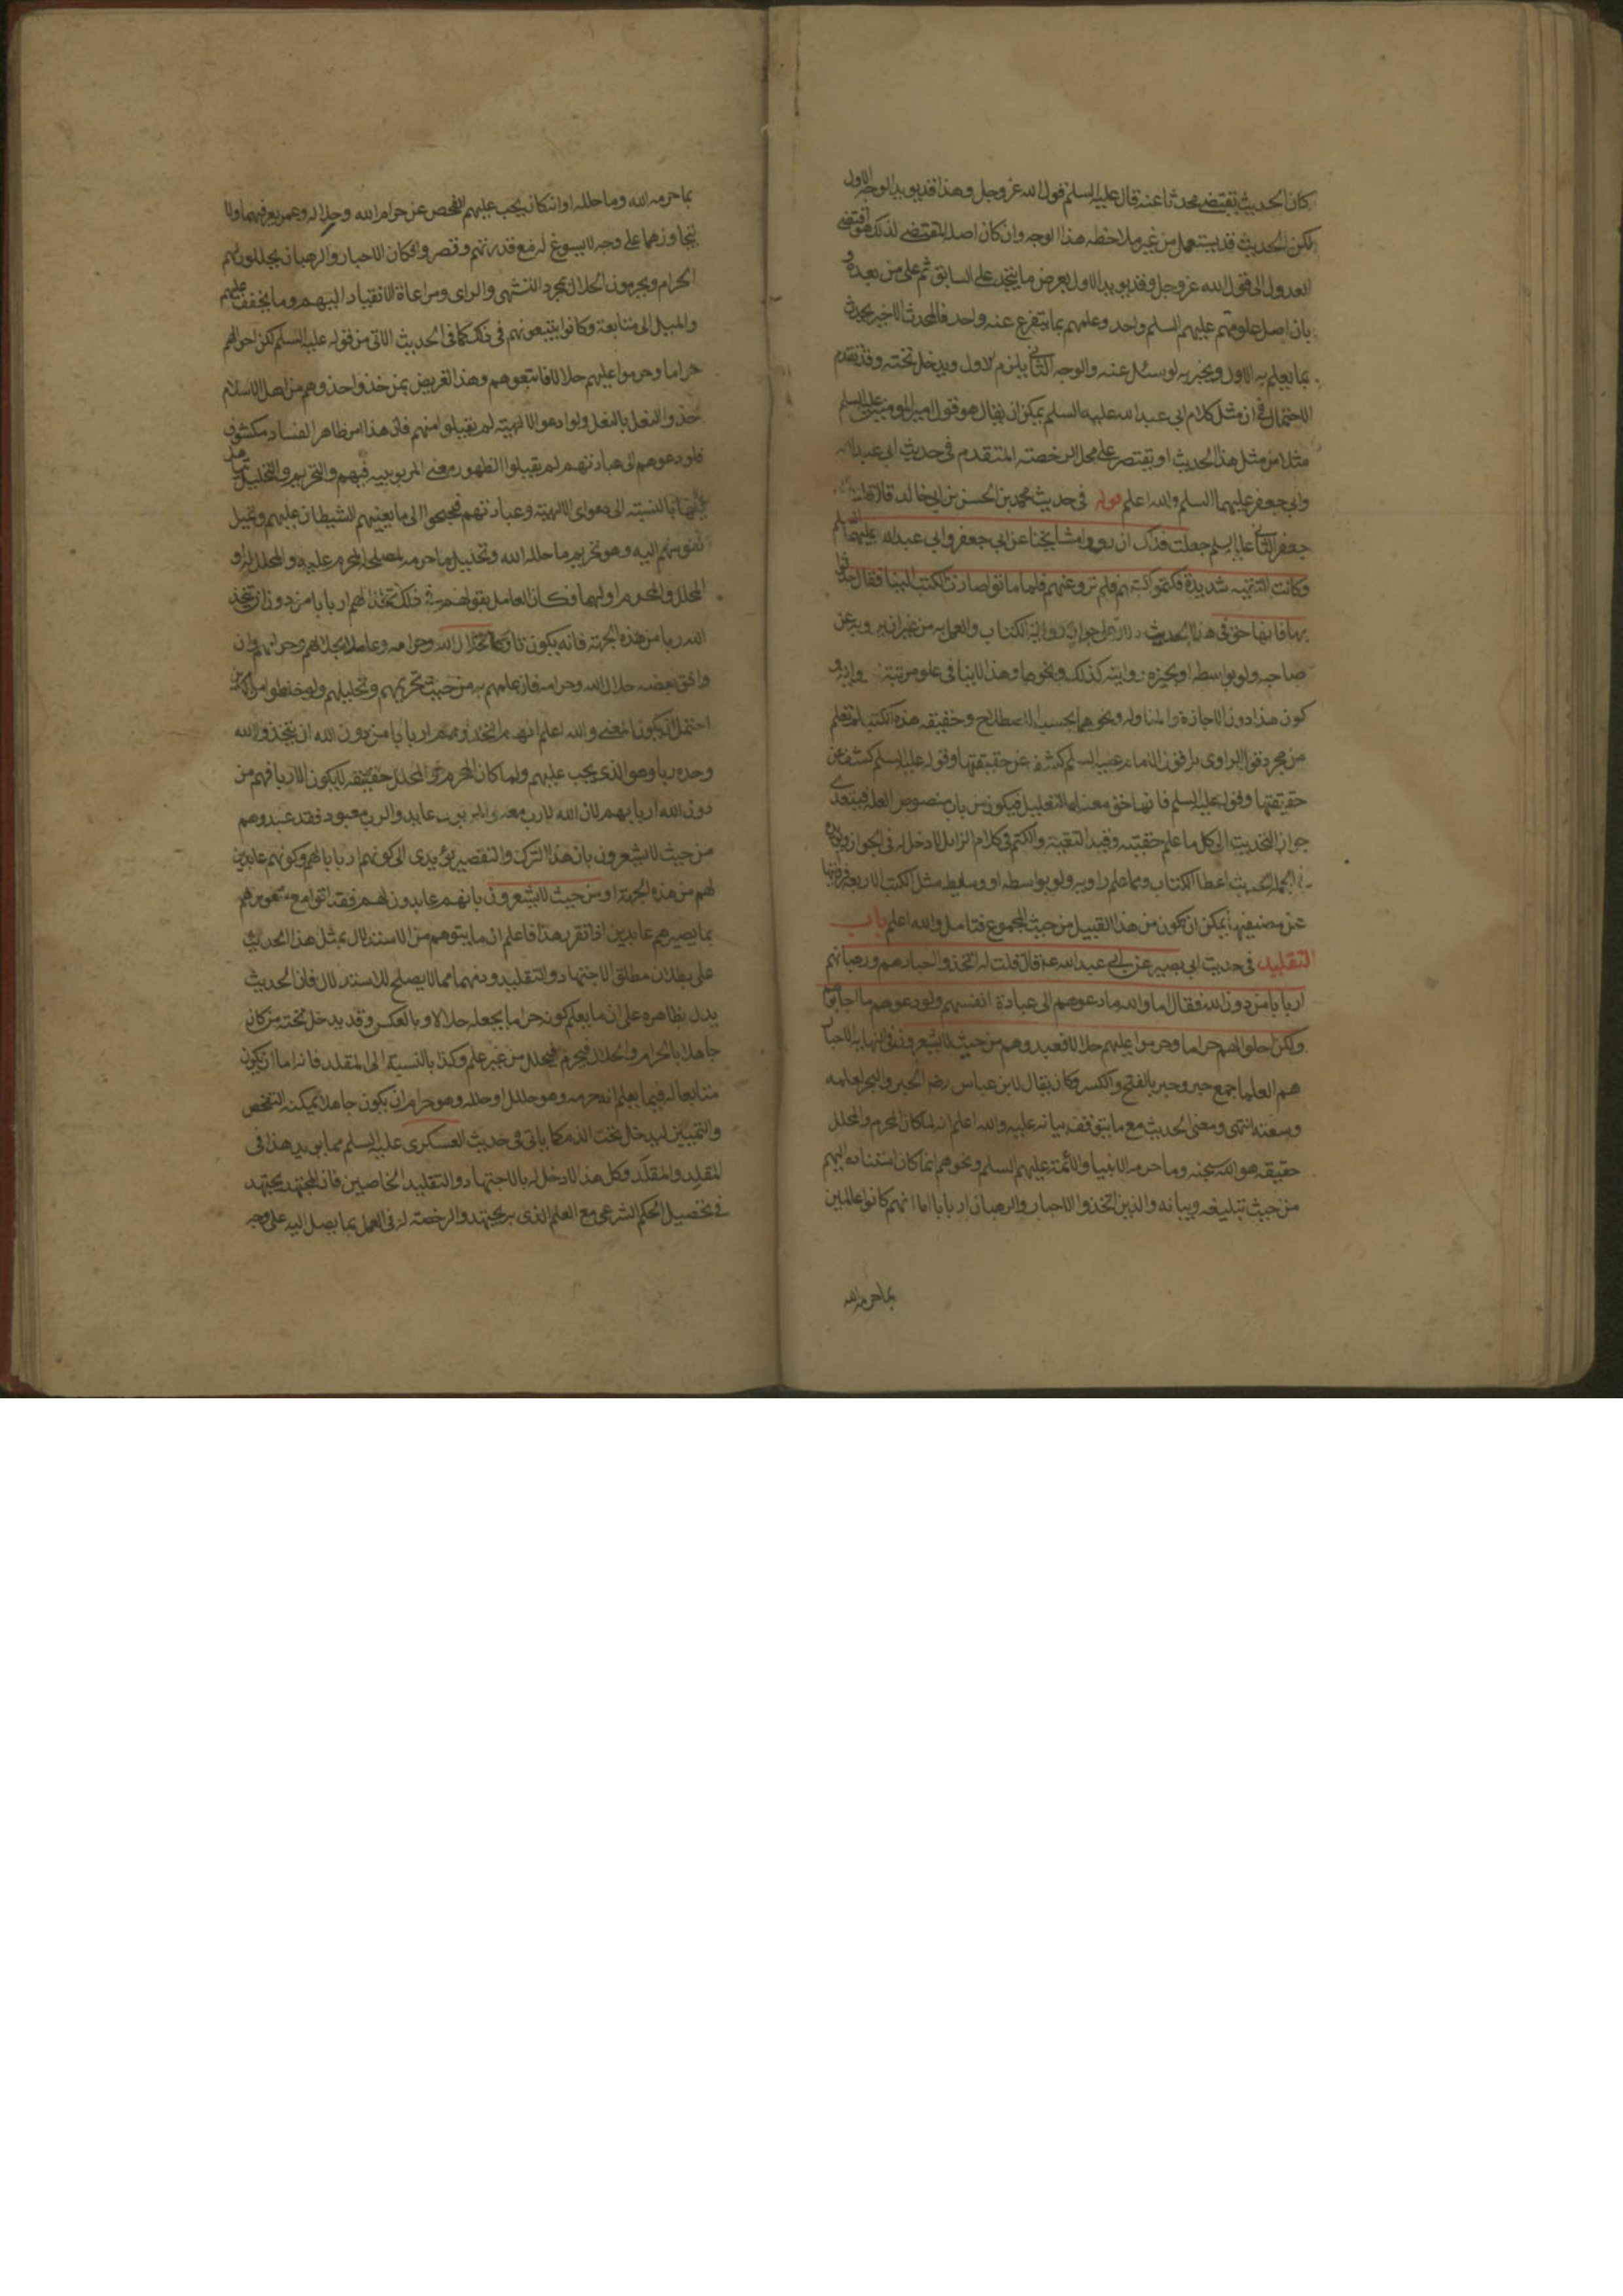 كان الحديث يقتضى محدثا عنه قال عليه السلم قول الله عز وجل وهذا قد يويد الوجه الاول
لكن الحديث قد يستعمل من غير ملاحظه هذا الوجه وان كان اصله المقتضى لذلك
العدول الى قول الله عز وجل وقد يويد الاول بعرض ما يتجدد على السابق ثم على من بعده
بان اصل علومهم عليهم السلم واحد وعلمهم بما يتفرع عنه واحد فالمحدث الاخير يحدث
بما يعلم به الاول ويخبر به لو سئل عنه والوجه الثانى يلزم الاول ويدخل تحته وقد تقدم
الاحتمال فى ان مثل كلام ابى عبد الله عليه السلم يمكن ان يقال هو قول امير المومنين عليه السلم
مثلا من مثل هذا الحديث او يقتصر على محل الرخصته المتقدم فى حديث ابى عبد الله
وابى جعفر عليهما السلم والله اعلم قوله فى حديث محمد بن الحسن بن ابى خالد قال قلت
جعفر الثانى عليه السلم جعلت فداك ان مشايخنا رووا عن ابى جعفر وابى عبد الله عليهما السلم
وكانت التقيه شديدة فكتموا كتبهم فلم ترو عنهم فلما ماتوا صارت الكتب الينا فقال حدثوا
بها فانها حق فى هذا الحديث دلالة على جواز رواية الكتاب والعمل به من غير ان يرويه عن
صاحبه ولو بواسطه او يجيزه روايته كذلك ونحوها وهذا لا ينافى علو مرتبته
كون هذا دون الاجازة والمناوله ونحوهما بحسب الاصطلاح وحقيقه هذه الكتب لم تعلم
من مجرد قول الراوى بل قول الامام عليه السلم كشف عن حقيقتها وقوله عليه السلم كشف عن
حقيقتها وقوله عليه السلم فانها حق معناه التعليل فيكون من باب منصوص العله فيتعدى
جواز التحديث الى كل ما علم حقيته وقيد التقية والكتم فى كلام الراوى لا دخل له فى الجواز
اعطا الكتاب وما علم راويه ولو بواسطه او وسايط مثل الكتب الاربعه
عن مصنفيها يمكن ان يكون من هذا القبيل من حيث المجموع فتامل والله اعلم باب
التقليد فى حديث ابى بصير عن ابى عبد الله قال قلت له اتخذوا احبارهم ورهبانهم
اربابا من دون الله فقال اما والله ما دعوهم الى عبادة انفسهم ولو دعوهم ما اجابوا
ولكن احلوا لهم حراما وحرموا عليهم حلالا فعبدوهم من حيث لا يشعرون فى النهايه الاحبار
هم العلما جمع حبر وحبر بالفتح والكسر وكان يقال لابن عباس رضه الحبر والبحر لعلمه
وسعته انتهى ومعنى الحديث مع ما يتوقف بيانه عليه والله اعلم انه لما كان المحرم والمحلل
حقيقه هو الله سبحنه وما حرمه الانبيا والائمة عليهم السلم ونحوهم انما كان استناده اليهم
من حيث تبليغه وبيانه والذين اتخذوا الاحبار والرهبان اربابا اما انهم كانوا عالمين
بما حرمه الله
بما حرمه الله وما حلله او انه كان يجب عليهم الفحص عن حرام الله وحلاله وعمن يعرفهما ولا
يتجاوزهما على وجه لا يسوغ له مع قدرتهم وقصروا فكان الاحبار والرهبان يحللون لهم
الحرام ويحرمون الحلال بمجرد التشهى والراى ومراعاة الانقياد اليهم وما يخفف عليهم
والميل الى متابعة وكانوا يتبعونهم فى ذلك كما فى الحديث الاتى من قوله عليه السلم لكن احلوا لهم
حراما وحرموا عليهم حلالا فاتبعوهم وهذا تعريض بمن حذو احذوهم من اهل الاسلام
حذو النعل بالنعل ولو ادعوا الالهية لم يقبلوا منهم فان هذا امر ظاهر الفساد مكشوف
فلو دعوهم الى عبادتهم لم يقبلوا لظهور معنى المربوبيه فيهم والتحريم والتحليل
بالنسبته الى دعواى الالهية وعبادتهم فجنحوا الى ما يعينهم الشيطان عليهم وتميل
نفوسهم اليه وهو تحريم ما حلله الله وتحليل ما حرمه لمصلحة المحرم عليه والمحلل له او
المحلل والمحرم او لهما فكان العامل بقولهم فى ذلك متخذا لهم اربابا من دون ان يتخذ
الله ربا من هذه الجهة فانه يكون تاركا لحلال الله وحرامه وعاملا بحلالهم وحرامهم وان
وافق بعضه حلال الله وحرامه فان علمهم به من حيث تحريمهم وتحليلهم
احتمل ان يكون المعنى والله اعلم انهم اتخذوهم اربابا من دون الله ان يتخذوا الله
وحده ربا وهو الذى يجب عليهم ولما كان المحرم والمحلل حقيقه لا يكون الا ربا فهم من
دون الله اربابهم لان الله لا رب معه والمربوب عابد والرب معبود فقد عبدوهم
من حيث لا يشعرون بان هذا الترك والتقصير يودى الى كونهم اربابا لهم وكونهم عابدين
لهم من هذه الجهة او من حيث لا يشعرون بانهم عابدون لهم فقد اتوا مع شعورهم
بما يصيرهم عابدين اذا تقرر هذا فاعلم ان ما يتوهم من الاستدلال بمثل هذا الحديث
على بطلان مطلق الاجتهاد والتقليد ونحوهما مما لا يصلح للاستدلال فان الحديث
يدل بظاهره على ان ما يعلم كونه حراما يجعله حلالا وبالعكس وقد يدخل تحته من كان
جاهلا بالحرام والحلال فيحرم فيحلل من غير علم وكذا بالنسبة الى المقلد فانه اما ان يكون
متابعا له فيما يعلم انه حرمه وهو حلال او حلله وهو حرام او ان يكون جاهلا يمكنه الفحص
والتمييز ليدخل تحت الذم كما ياتى فى حديث العسكرى عليه السلم مما يويد هذا فى
المقلد والمقلد وكل هذا لا دخل له بالاجتهاد والتقليد الخاصين فان المجتهد يجتهد
فى تحصيل الحكم الشرعى مع العلم الذى به يجتهد والرخصته له فى العمل بما يصل اليه على وجه